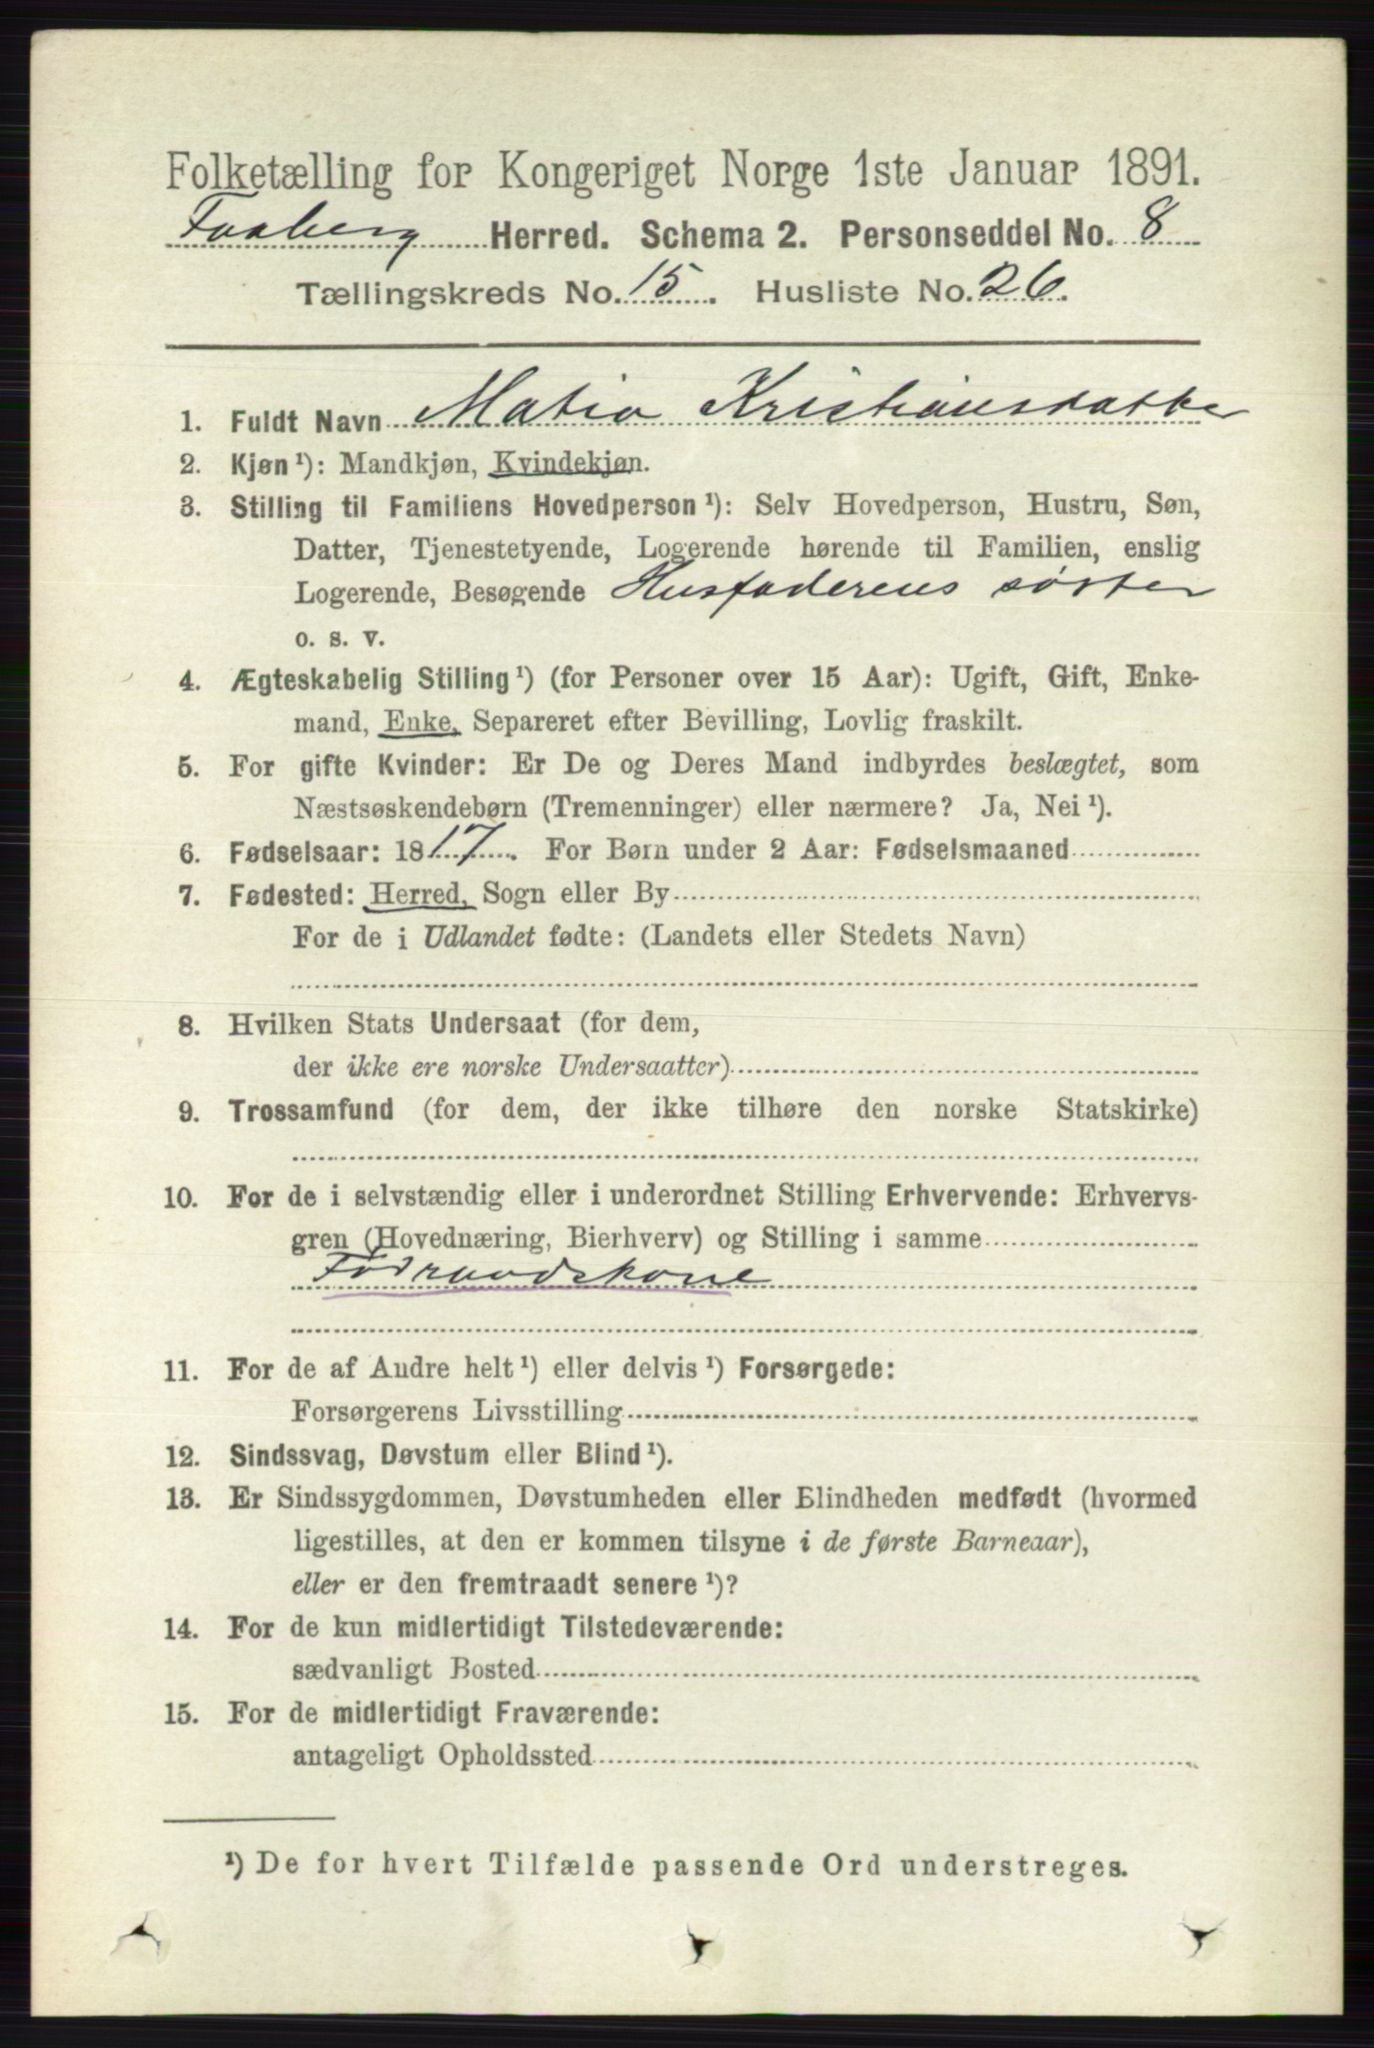 Folketælling for Kongeriget Norge 1ste Januar 1891.
Faaberg Herred. Schema 2. Personseddel No. 8
Tællingskreds No. 15. Husliste No. 26.
1. Fuldt Navn Matia Kristiansdatter
2. Kjøn ¹): Mandkjøn, Kvindekjøn.
3. Stilling til Familiens Hovedperson ¹): Selv Hovedperson, Hustru, Søn,
Datter, Tjenestetyende, Logerende hørende til Familien, enslig
Logerende, Besøgende Husfaderens søster
o. s. v.
4. Ægteskabelig Stilling ¹) (for Personer over 15 Aar): Ugift, Gift, Enke-
mand, Enke, Separeret efter Bevilling, Lovlig fraskilt.
5. For gifte Kvinder: Er De og Deres Mand indbyrdes beslægtet, som
Næstsøskendebørn (Tremenninger) eller nærmere? Ja, Nei ¹).
6. Fødselsaar: 1817. For Børn under 2 Aar: Fødselsmaaned
7. Fødested: Herred, Sogn eller By
For de i Udlandet fødte: (Landets eller Stedets Navn)
8. Hvilken Stats Undersaat (for dem,
der ikke ere norske Undersaatter)
9. Trossamfund (for dem, der ikke tilhøre den norske Statskirke)
10. For de i selvstændig eller i underordnet Stilling Erhvervende: Erhvervs-
gren (Hovednæring, Bierhverv) og Stilling i samme
Føderaadskone
11. For de af Andre helt ¹) eller delvis ¹) Forsørgede:
Forsørgerens Livsstilling
12. Sindssvag, Døvstum eller Blind ¹).
13. Er Sindssygdommen, Døvstumheden eller Blindheden medfødt (hvormed
ligestilles, at den er kommen tilsyne i de første Barneaar),
eller er den fremtraadt senere ¹)?
14. For de kun midlertidigt Tilstedeværende:
sædvanligt Bosted
15. For de midlertidigt Fraværende:
antageligt Opholdssted
¹) De for hvert Tilfælde passende Ord understreges.